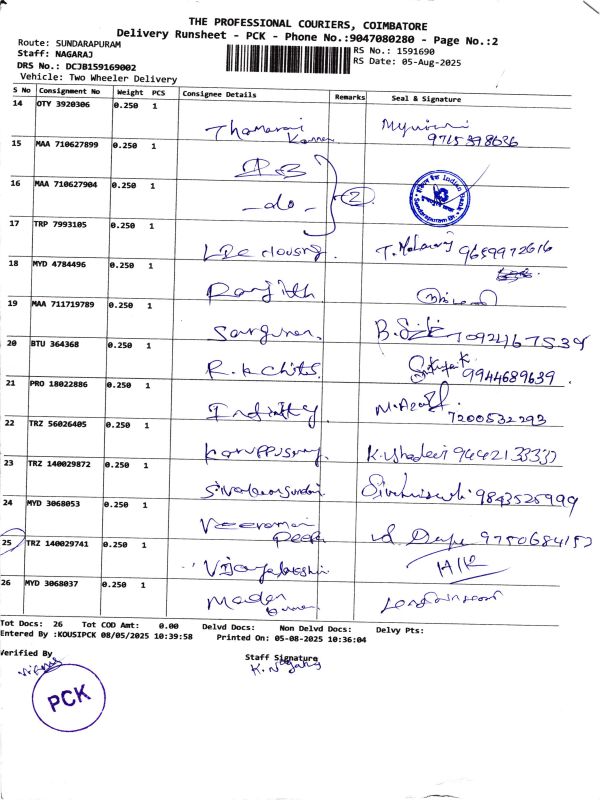 THE PROFESSIONAL COURIERS, COIMBATORE
Delivery Runsheet - PCK - Phone No.:9047080280 - Page No.:2
Route: SUNDARAPURAM
Staff: NAGARAJ
DRS No.: DCJB159169002
Vehicle: Two Wheeler Delivery
RS No.: 1591690
RS Date: 05-Aug-2025
S No Consignment No Weight PCS Consignee Details Remarks Seal & Signature
14 OTY 3920306 0.250 1 Thamarai Kannan 9715398636
15 MAA 710627899 0.250 1 IPB
16 MAA 710627904 0.250 1 -do- 2 Indian Bank Sundarapuram Br
17 TRP 7993105 0.250 1 LIC Housing 9659972616
18 MYD 4784496 0.250 1 Ranjith
19 MAA 711719789 0.250 1 Sargunan.
20 BTU 364368 0.250 1 R.K chits. 9944689639.
21 PRO 18022886 0.250 1 Infinity 7200532293
22 TRZ 56026405 0.250 1 Karuppusamy K.Ushadevi 9442133333
23 TRZ 140029872 0.250 1 9843525999
24 MYD 3068053 0.250 1 Veeramani 9750684153
25 TRZ 140029741 0.250 1 H/K
26 MYD 3068037 0.250 1
Tot Docs: 26 Tot COD Amt: 0.00 Delvd Docs: Non Delvd Docs: Delvy Pts:
Entered By :KOUSIPCK 08/05/2025 10:39:58 Printed On: 05-08-2025 10:36:04
Verified By Staff Signature
K. Nagaraj
PCK